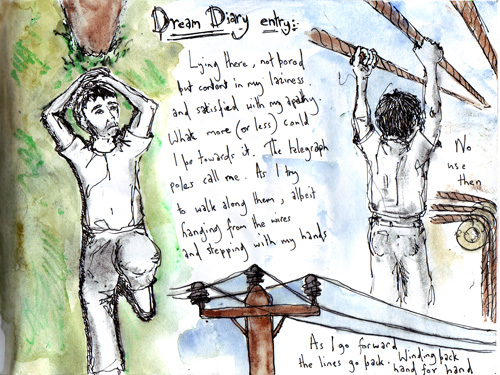 Dream Diary entry:
Lying there, not bored
but content in my laziness.
and satisfied with my apathy.
What more (or less) could
I do towards it. The telegraph
poles call me. As I try
to walk along them, albeit
hanging from the wires
and stepping with my hands
No
use
then
As I go forward
the lines go back. Winding back
hand for hand